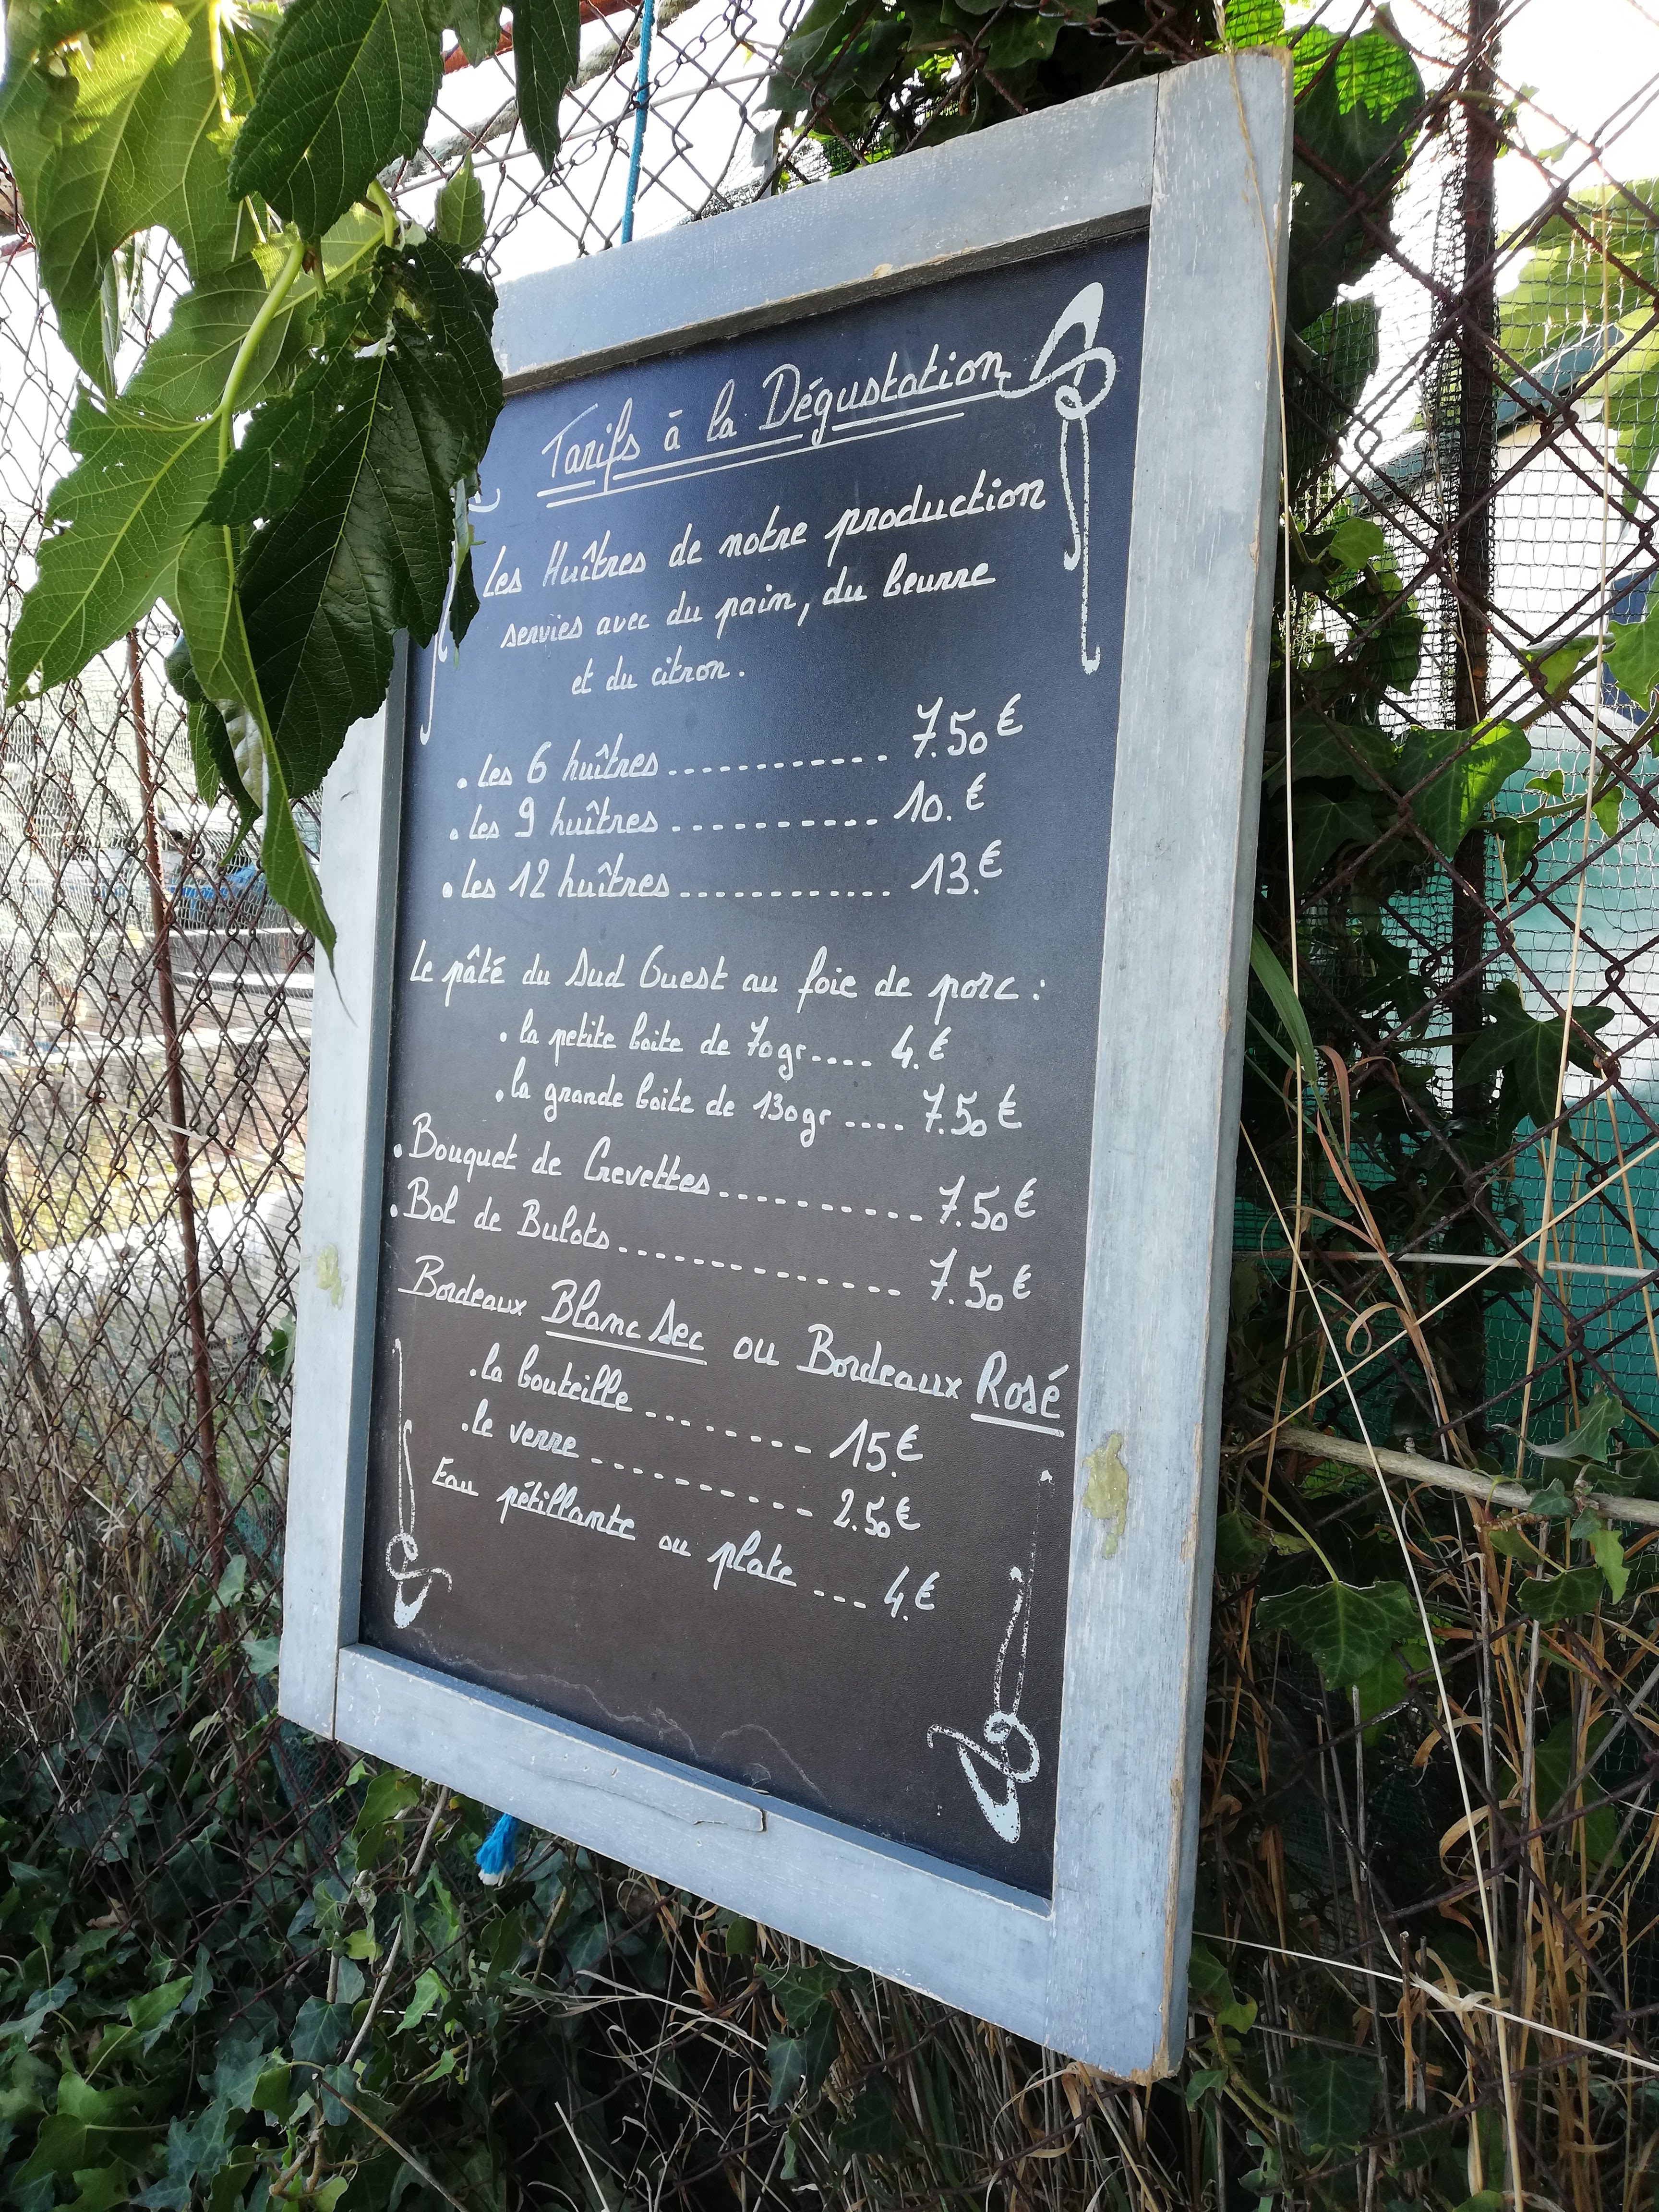 Tarifs à la Dégustation
Les Huîtres de notre production
servies avec du pain, du beurre
et du citron.
. Les 6 huîtres ............ 7.50 €
. Les 9 huîtres .......... 10. €
. Les 12 huîtres ............ 13. €
Le pâté du Sud Ouest au foie de porc :
. la petite boite de 70gr .... 4. €
. la grande boite de 130gr .... 7.50 €
. Bouquet de Crevettes .......... 7.50 €
. Bol de Bulots .............. 7.50 €
Bordeaux Blanc Sec ou Bordeaux Rosé
. la bouteille ......... 15. €
. le verre ........... 2.50 €
Eau pétillante ou plate ... 4. €